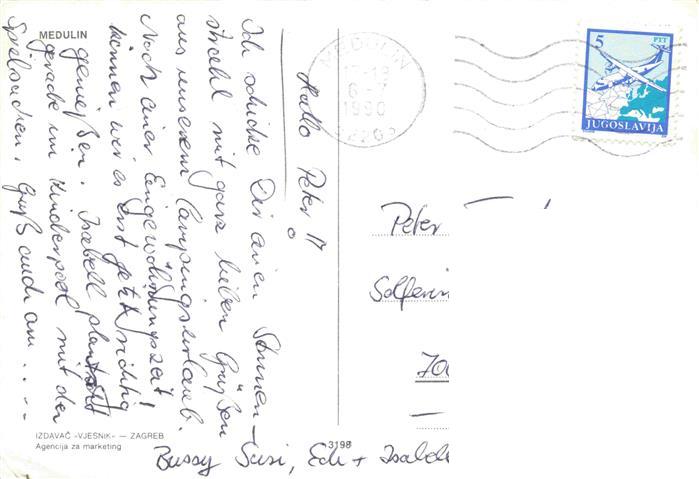 MEDULIN
Hallo Peter !!
Ich schicke Dir einen Sonnen-
strahl mit ganz lieben Grüßen
aus unserem Campingurlaub.
Nach einer Eingewöhnungszeit
können wir es erst jetzt richtig
genießen. Isabell planscht
gerade im Kinderpool mit den
Spielsachen. Gruß auch am . . . .
Bussy Susi, Edi + Isabell
IZDAVAČ »VJESNIK« — ZAGREB
Agencija za marketing
3198
MEDULIN
1990
5 PTT
JUGOSLAVIJA
Peter
Solferin